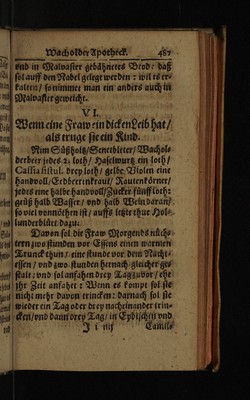 Wacholder Apotheck. 487
und in Malvasier gebähnetes Brod: daß
sol auff den Nabel gelegt werden: wil es er-
kalten/ so nimmet man ein anders auch in
Malvasier geweicht.
VI.
Wenn eine Fraw ein dicken Leib hat/
als trüge sie ein Kind.
Nim Süßholtz/Senetbletter/ Wachol-
derbeer jedes 2. loth/ Haselwurtz ein loth/
Cassia fistul. drey loth/ gelbe Violen eine
handvoll/Erdbeernkraut/ Rautenkörner/
jedes eine halbe handvoll/Zucker fünff loth:
geuß halb Wasser/ und halb Wein daran/
so viel vonnöthen ist/ auffs letzte thue Hol-
lunderblüet dazu.
Davon sol die Fraw Morgends nüch-
tern zwo stunden vor Essens einen warmen
Trunck thun/ eine stunde vor dem Nacht-
essen/ und zwo stunden hernach gleicher ge-
stalt: und sol anfahen drey Tag zuvor/ ehe
ihr Zeit anfahet: Wenn es kompt sol sie
nicht mehr davon trincken: darnach sol sie
wieder ein Tag oder drey nacheinander trin-
cken/und dann drey Tag/ in Eybischen und
J i iiij Camil-